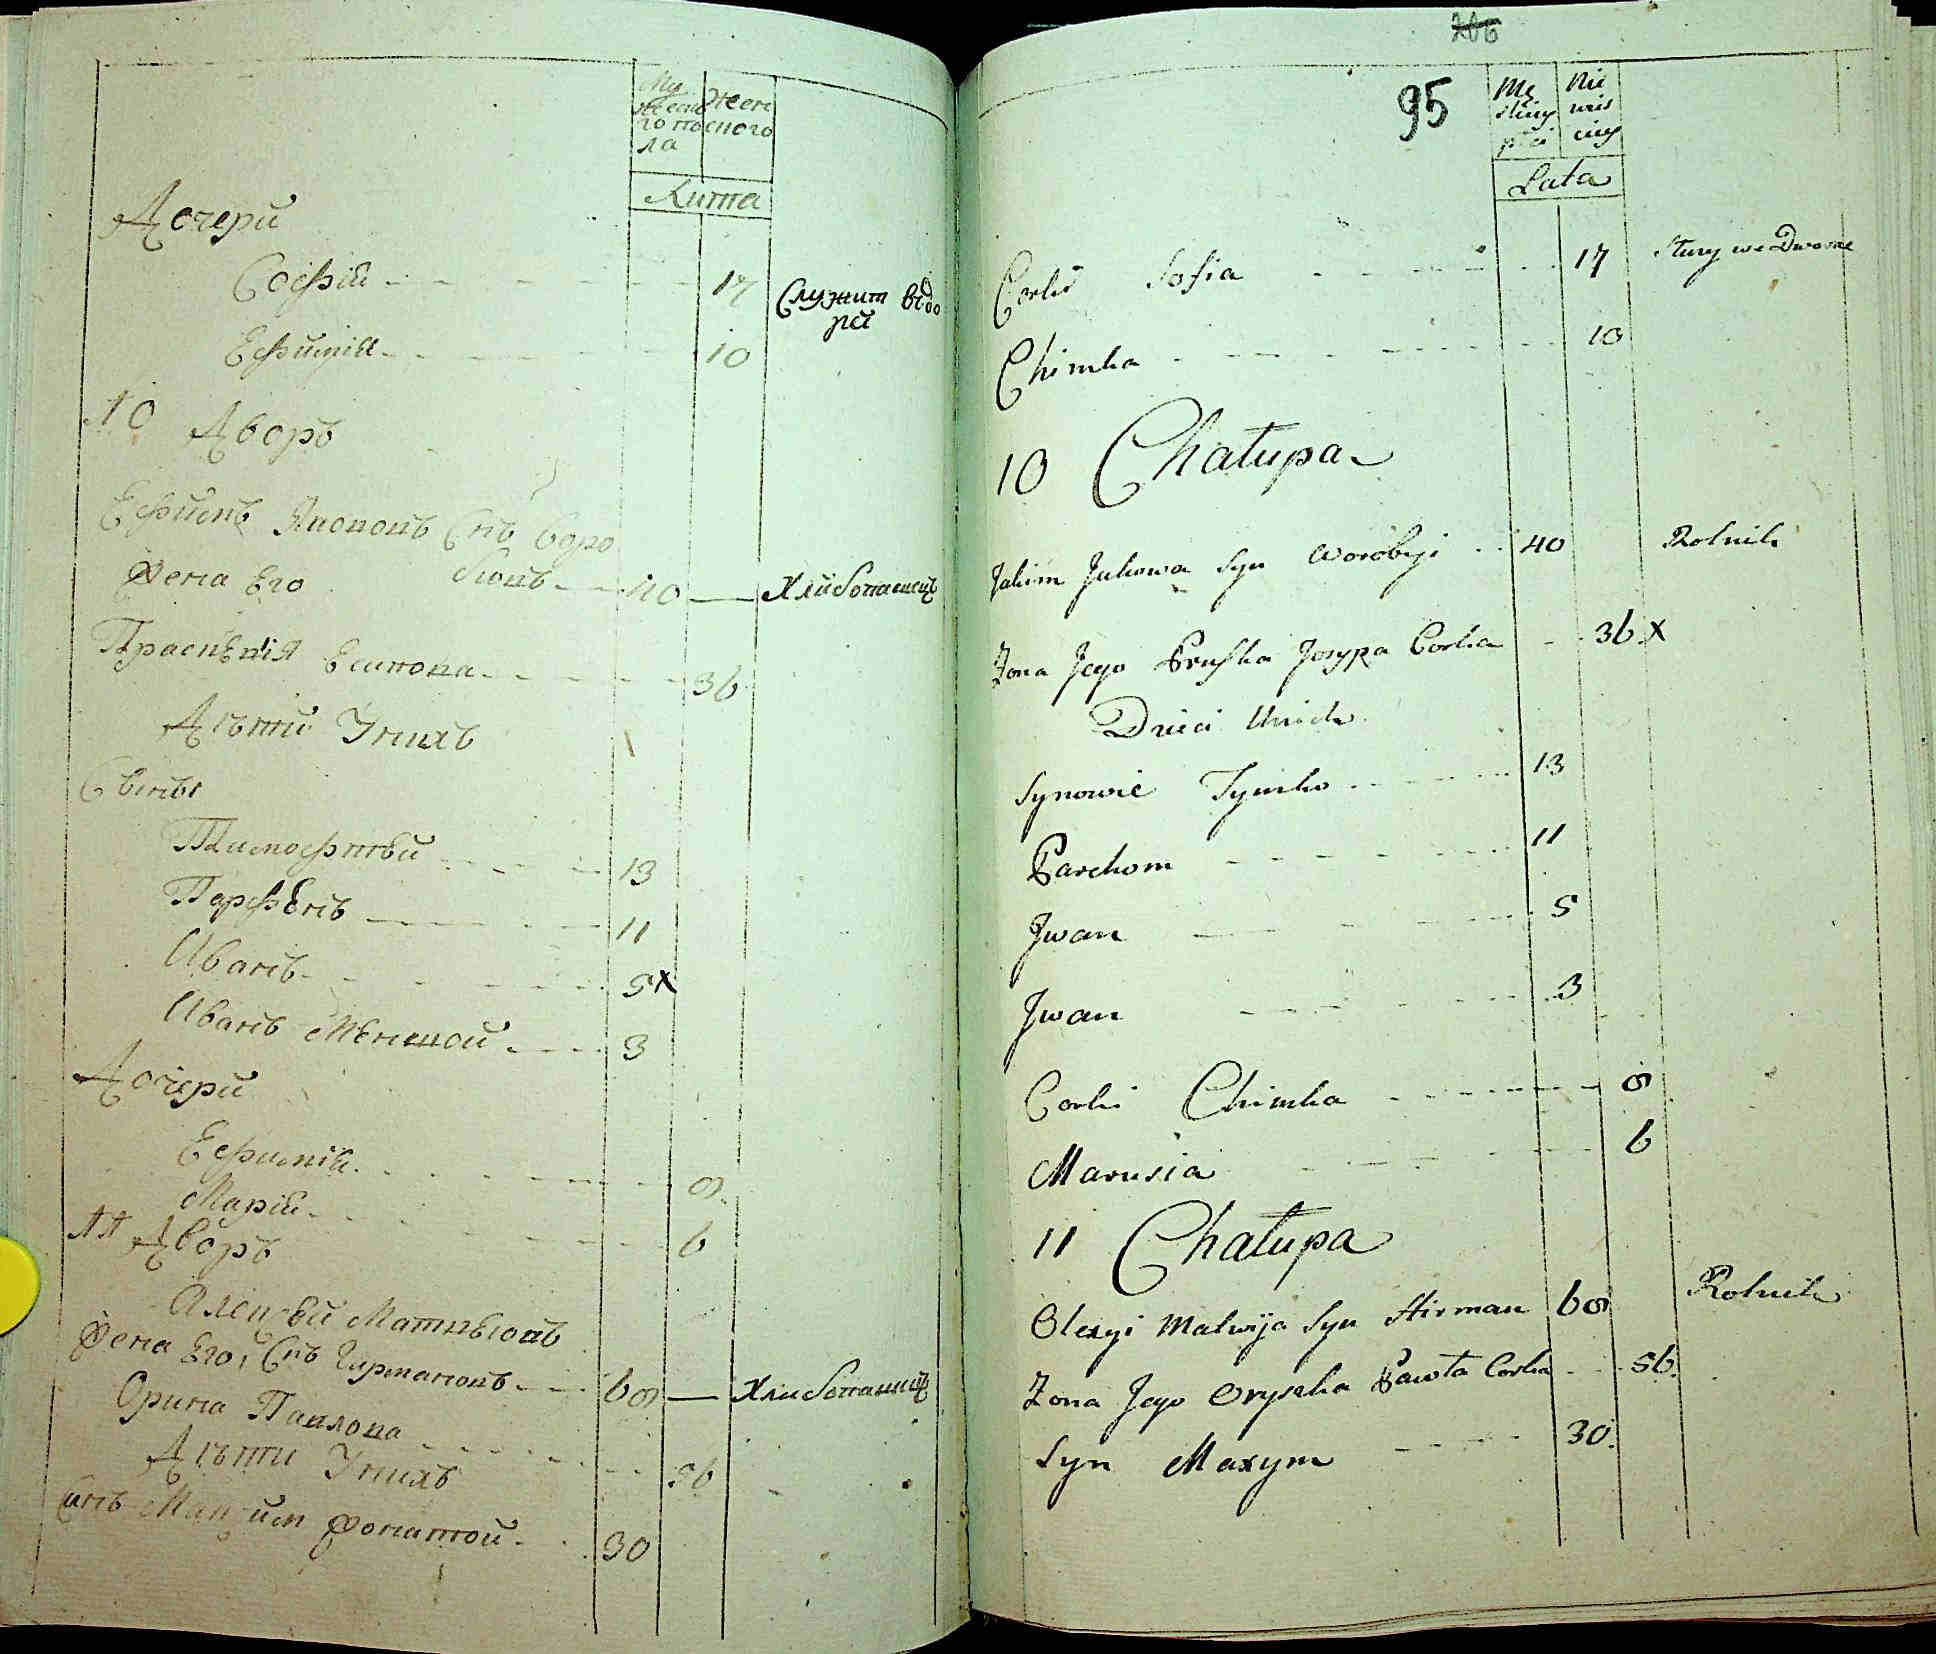 Му
жеска
го по
ла
Женс
кого
Лита
Дочери
Софій 17 Служит вдо
рй
Ефимій 10
10 Дворъ
Ефимъ Яковов Снъ Воро
Жена Его бювъ 40 Хлибопашецъ
Прасковія Есипова 36
Дѣти Унихъ
Сыны
Тимофѣй 13
Парфенъ 11
Иванъ 5 х
Иванъ Меншой 3
Дочери
Ефимій 8
Марій 6
11 Дворъ
Алексѣй Матвѣювъ
Жена Его, Снъ Гирмановъ 68 Хлибопашецъ
Орина Павлова 56
Дѣти Унихъ
Снъ Максим Жонатой 30
206
95
Mę
skiey
płci
Nie
wies
ciey
Lata
Corki Sofia 17 Służy we Dworze
Chimka 10
10 Chałupa
Jakim Jakowa Syn Worobiy 40 Rolnik
Zona Jego Pruska Josypa Corka 36 x
Dzieci Unich
Synowie Tymko 13
Parchom 11
Jwan 5
Jwan 3
Corki Chimka 8
Marusia 6
11 Chałupa
Olexyi Matwija Syn Hirman 68 Rolnik
Zona Jego Oryszka Pawła Corka 56
Syn Maxym 30